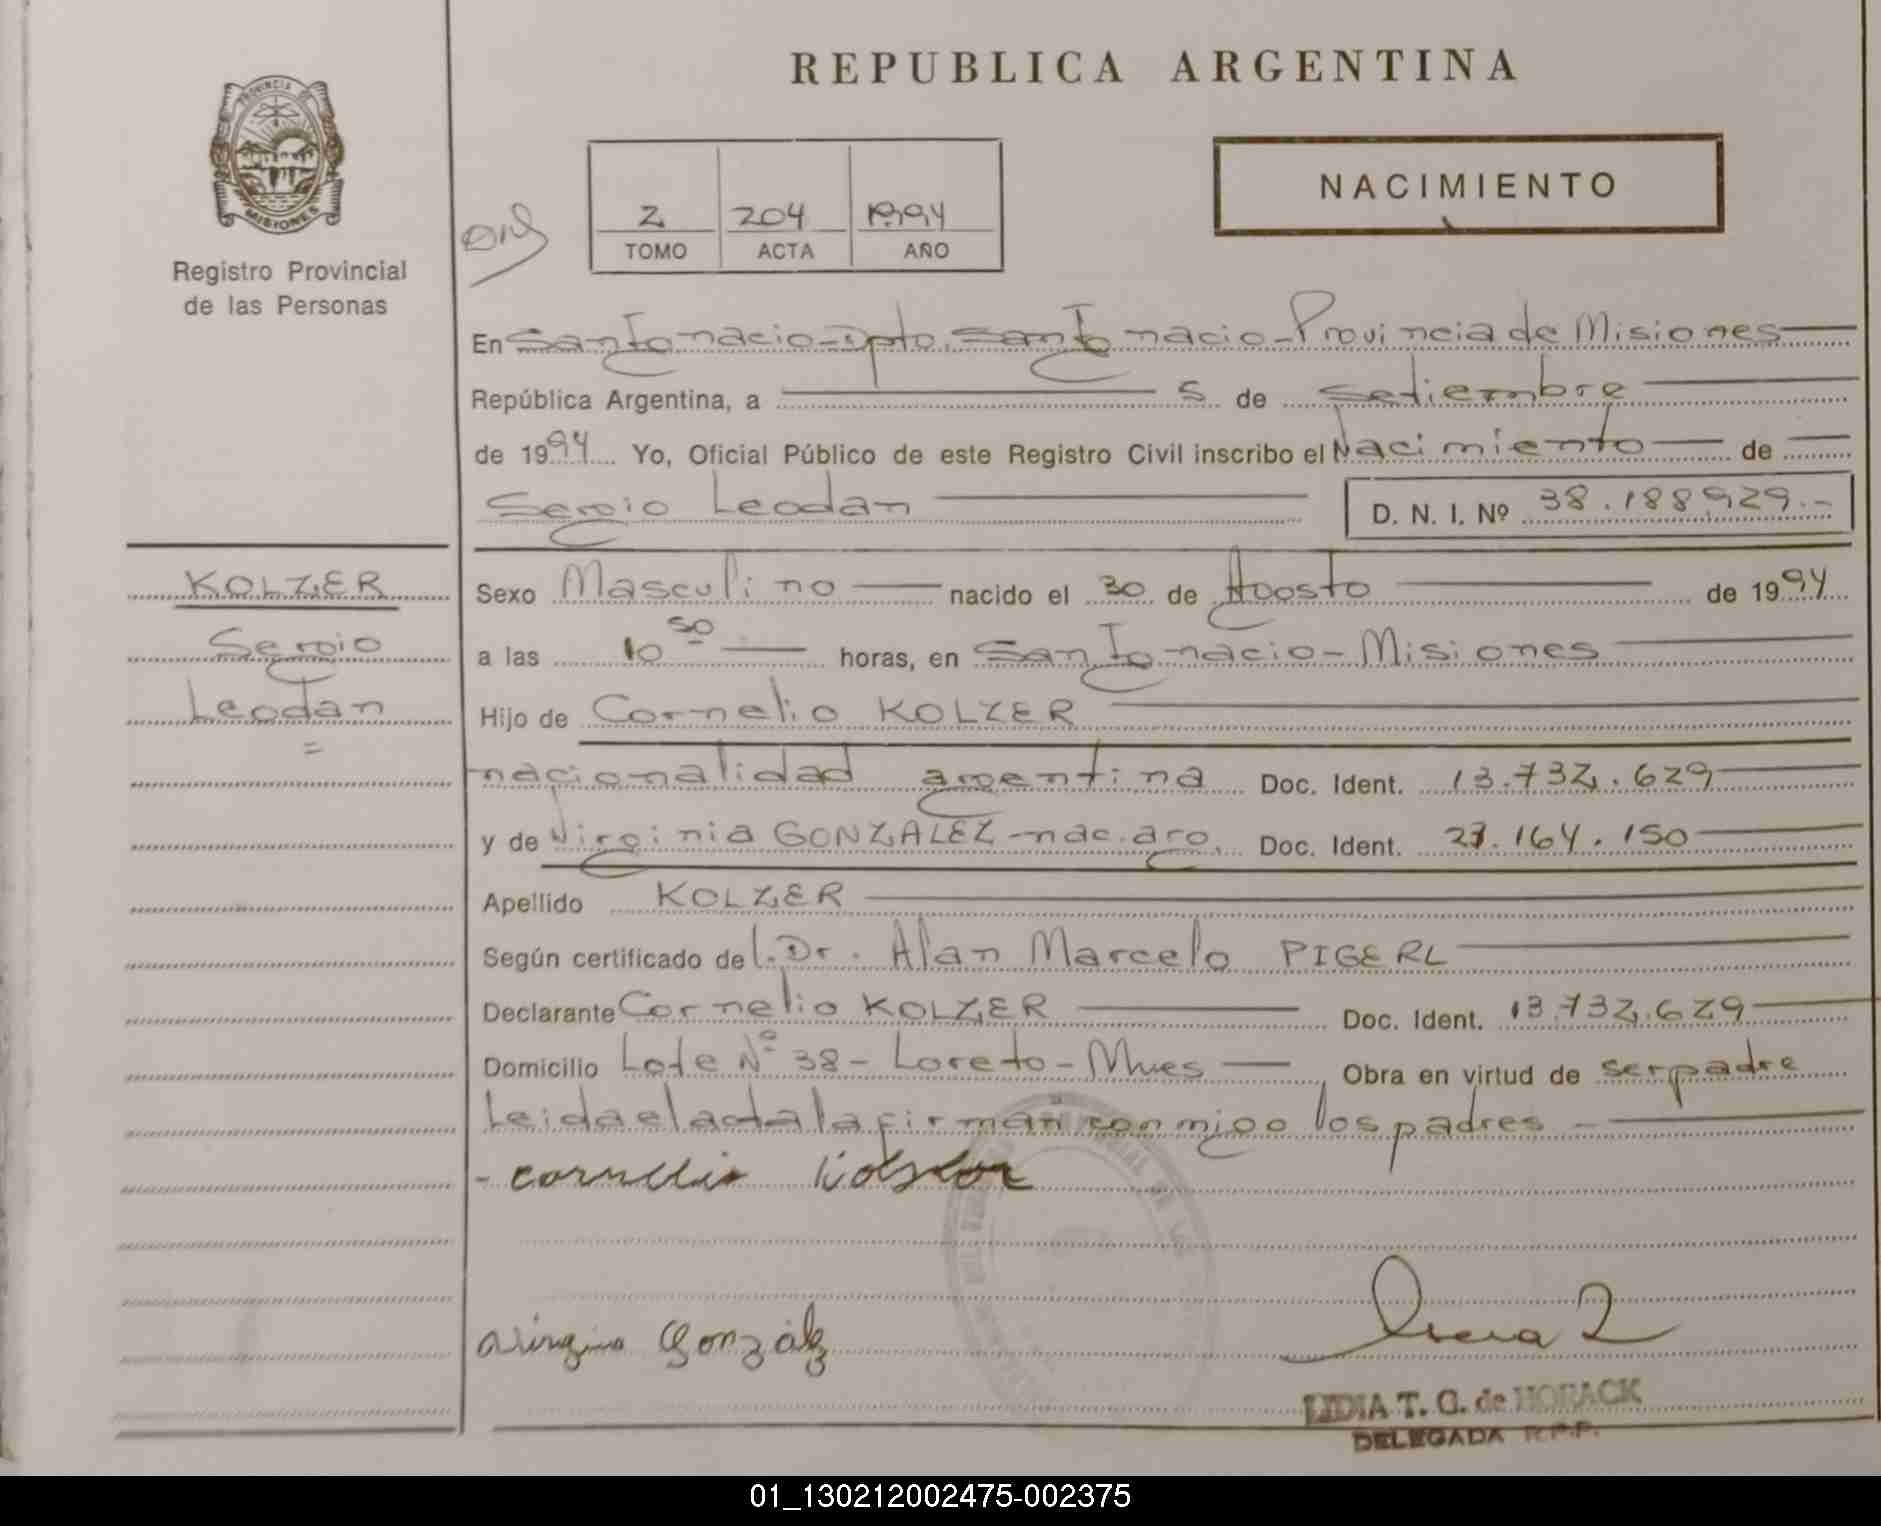 REPUBLICA ARGENTINA
PROVINCIA DE
MISIONES
Registro Provincial
de las Personas
NACIMIENTO
2 204 1994
TOMO ACTA AÑO
En San Ignacio - Dpto. San Ignacio - Provincia de Misiones
República Argentina, a 5 de Setiembre
de 1994 Yo, Oficial Público de este Registro Civil inscribo el Nacimiento de
Sergio Leodan D. N. I. Nº 38.188.929.-
KOLZER
Sergio
Leodan
=
Sexo Masculino nacido el 30 de Agosto de 1994
a las 10 50 horas, en San Ignacio - Misiones
Hijo de Cornelio KOLZER
nacionalidad argentina Doc. Ident. 13.732.629
y de Virginia GONZALEZ - nac. arg. Doc. Ident. 27.164.150
Apellido KOLZER
Según certificado del Dr. Alan Marcelo PIGERL
Declarante Cornelio KOLZER Doc. Ident. 13.732.629
Domicilio Lote Nº 38 - Loreto - Mnes Obra en virtud de ser padre
Leida el acta la firman conmigo los padres -
Virginia González
LIDIA T. G. de HORACK
DELEGADA R.P.P.
01_130212002475-002375